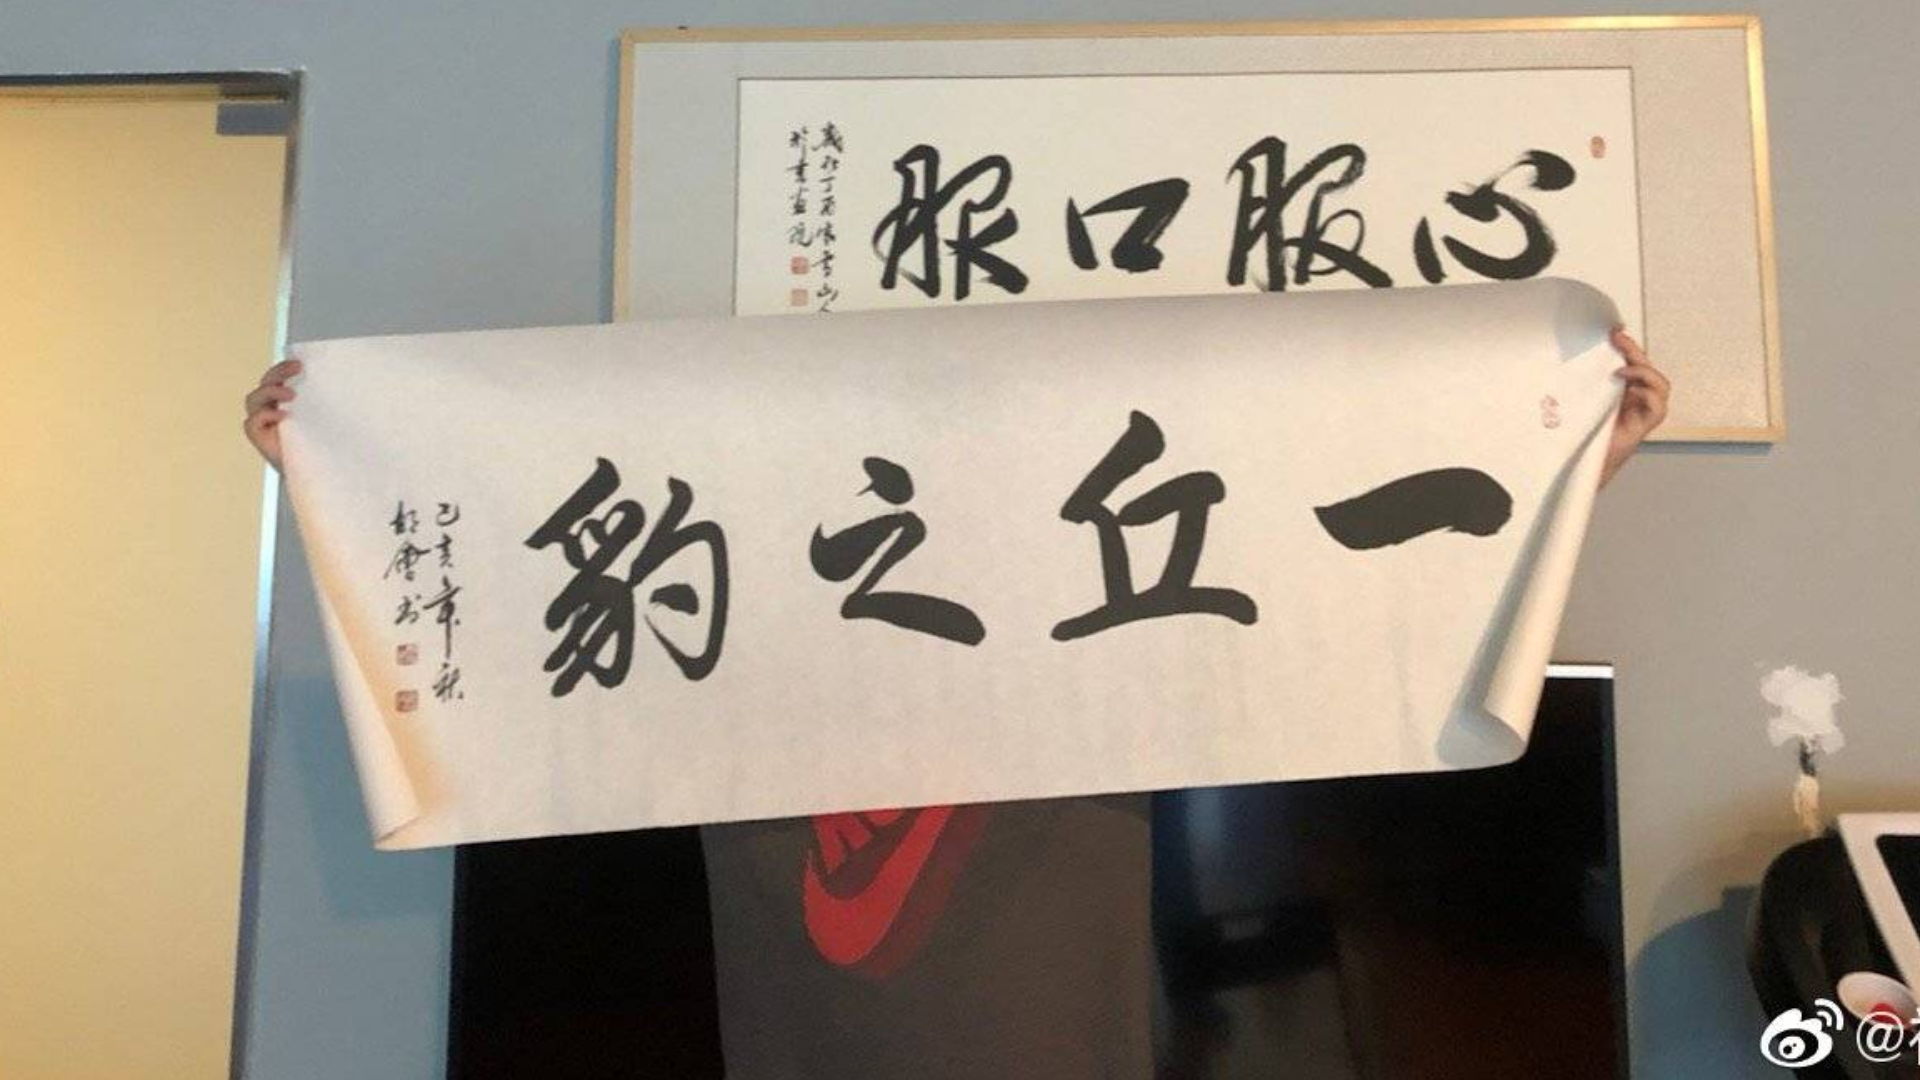 心服口服
歲次丁酉
一丘之豹
己亥年秋
@